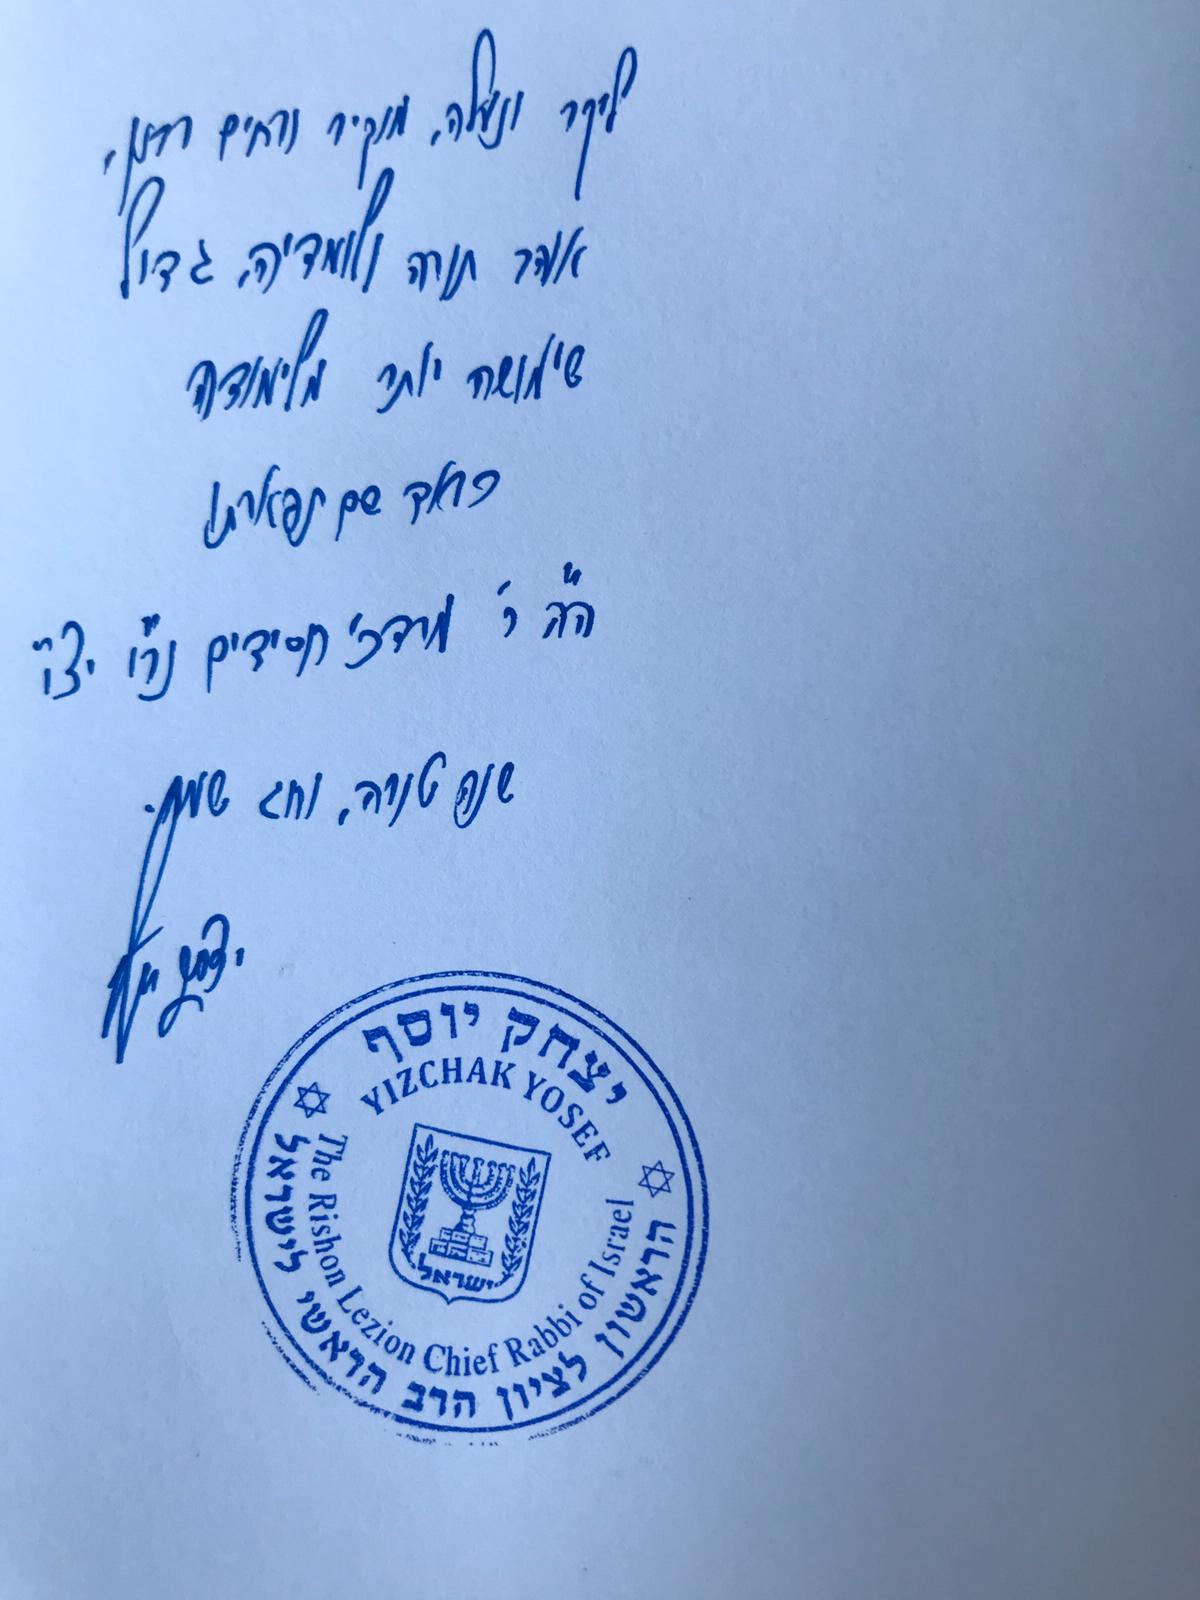 ליקר ונעלה, מוקיר ורחים רבנן,
אוהב תורה ולומדיה, גדול
שימושה יותר מלימודה
כבוד שם תפארתו
הה"ג ר' מרדכי חסידים נר"ו יצ"ו
שנה טובה, וחג שמח.
יצחק יוסף
יצחק יוסף
YIZCHAK YOSEF
ישראל
The Rishon Lezion Chief Rabbi of Israel
הראשון לציון הרב הראשי לישראל